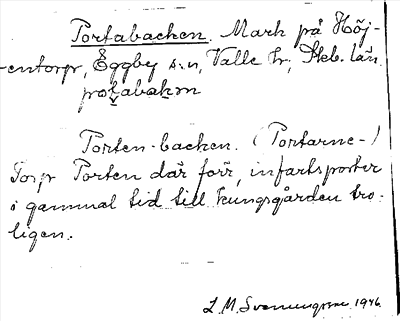 Portabacken. Mark på Höj-
entorp, Eggby s:n, Valle hr, Skb. län.
Porten-backen. (Portarne-)
Torp Porten där förr, infartsporter
i gammal tid till kungsgården tro-
ligen.
L. M. Svenungsson 1946